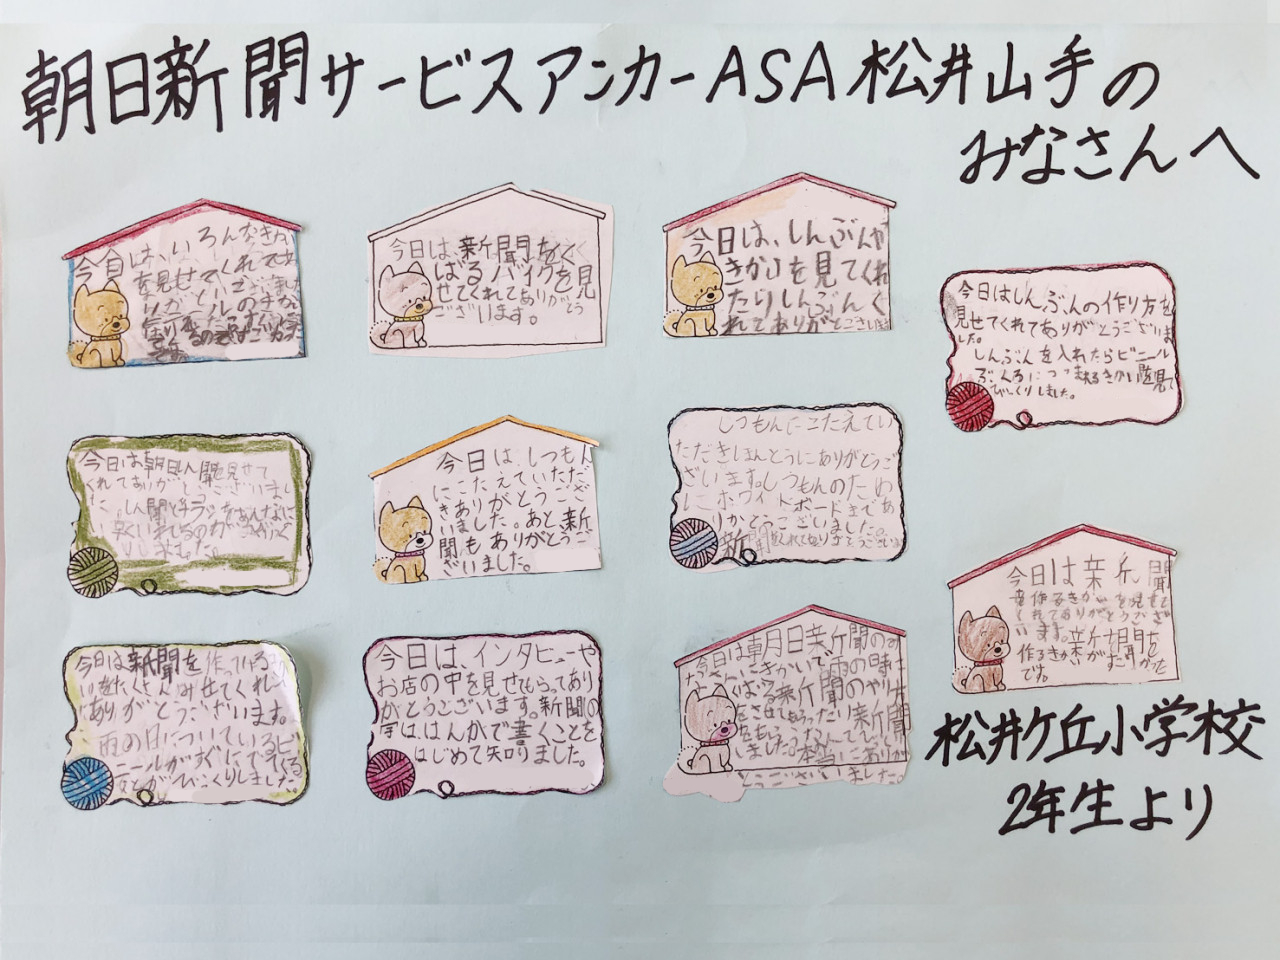 朝日新聞サービスアンカーASA松井山手の
みなさんへ
今日は、いろんなきかい
を見せてくれて
今日は、新聞をくく
ばるバイクを見
せてくれてありがとう
ございます。
今日は、しんぶんや
きかいを見てくれ
たりしんぶんく
れてありがとございま
今日はしんぶんの作り方を
見せてくれてありがとうございま
した。
しんぶんを入れたらビニール
ぶくろにつつまれるきかいを見て
びっくりしました。
今日は朝日しん聞を見せて
くれてありがとうございまし
た。しん聞とチラシをあんなに
早くいれるのが
今日は、しつもん
にこたえていただだ
きありがとうござ
いました。あと、新
聞もありがとうご
ざいました。
しつもんにこたえてい
ただきほんとうにありがとうご
ざいます。しつもんのため
にホワイトボードまであ
りがとうございました。
新聞くれてありがとうござい
今日は新聞を作っているき
いをたくさんみせてくれ
てありがとうございます。
雨の日についているビ
ニールがすぐにでてくる
ことがびっくりしました
今日は、インタビューや
お店の中を見せてもらってあり
がとうございます。新聞の
字ははんがで書くことを
はじめて知りました。
今日は朝日新聞のみ
せにきかいで、雨の時は
新聞のやり方
をさせてもらったり新聞
をもらうなんて
しました。本当にありが
とうございました。
今日は新聞
を作るきかいを見せて
くれてありがとうござ
います。新聞を
作るきかいがすごかった
です。
松井ケ丘小学校
2年生より